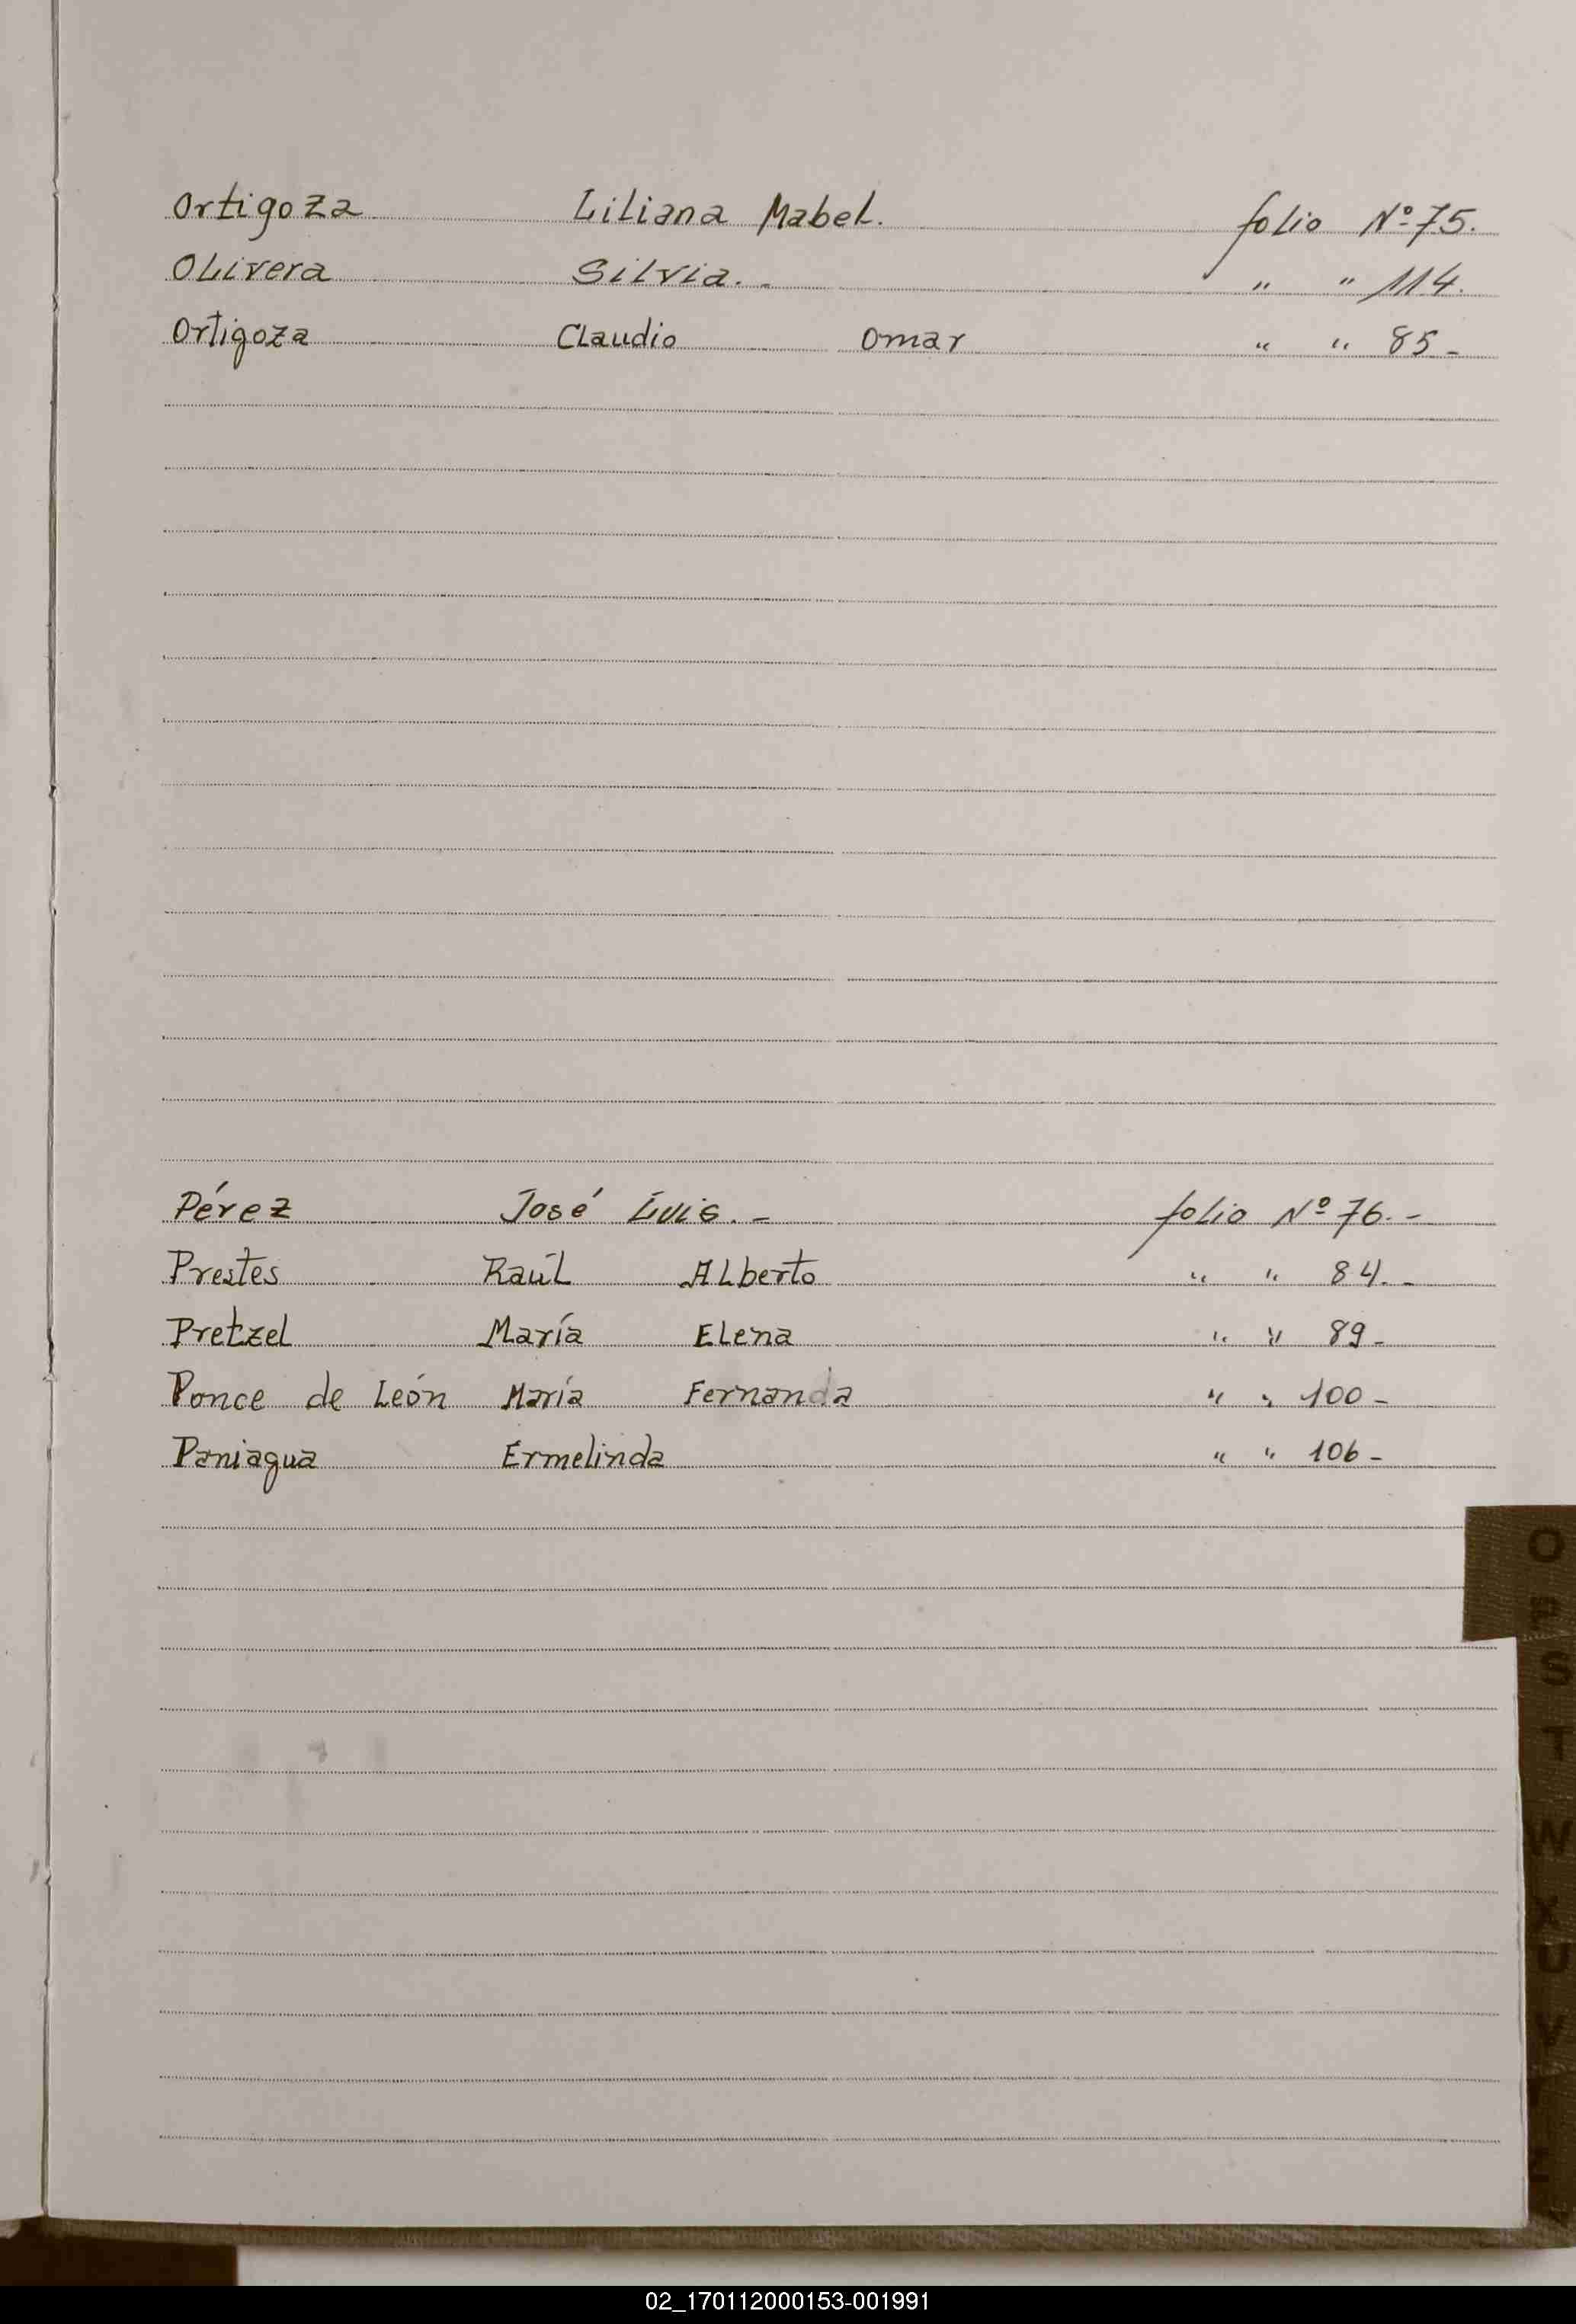 Ortigoza Liliana Mabel. folio Nº 75.
Olivera Silvia. - " " 114.
Ortigoza Claudio Omar " " 85 -
Pérez José Luis. - folio Nº 76. -
Prestes Raúl Alberto " " 84. -
Pretzel María Elena " " 89 -
Ponce de León María Fernanda " " 100 -
Paniagua Ermelinda " " 106 -
O
P
S
T
W
X
U
V
02_170112000153-001991